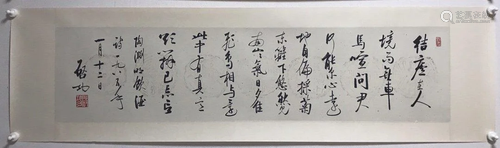 结廬在人
境而無車
馬喧問君
何能尔心遠
地自偏採菊
東籬下悠然見
南山氣日夕佳
飛鳥相与還
此中有真意
欲辨已忘言
陶淵明飲酒
詩一九八五年
一月十二日
启功